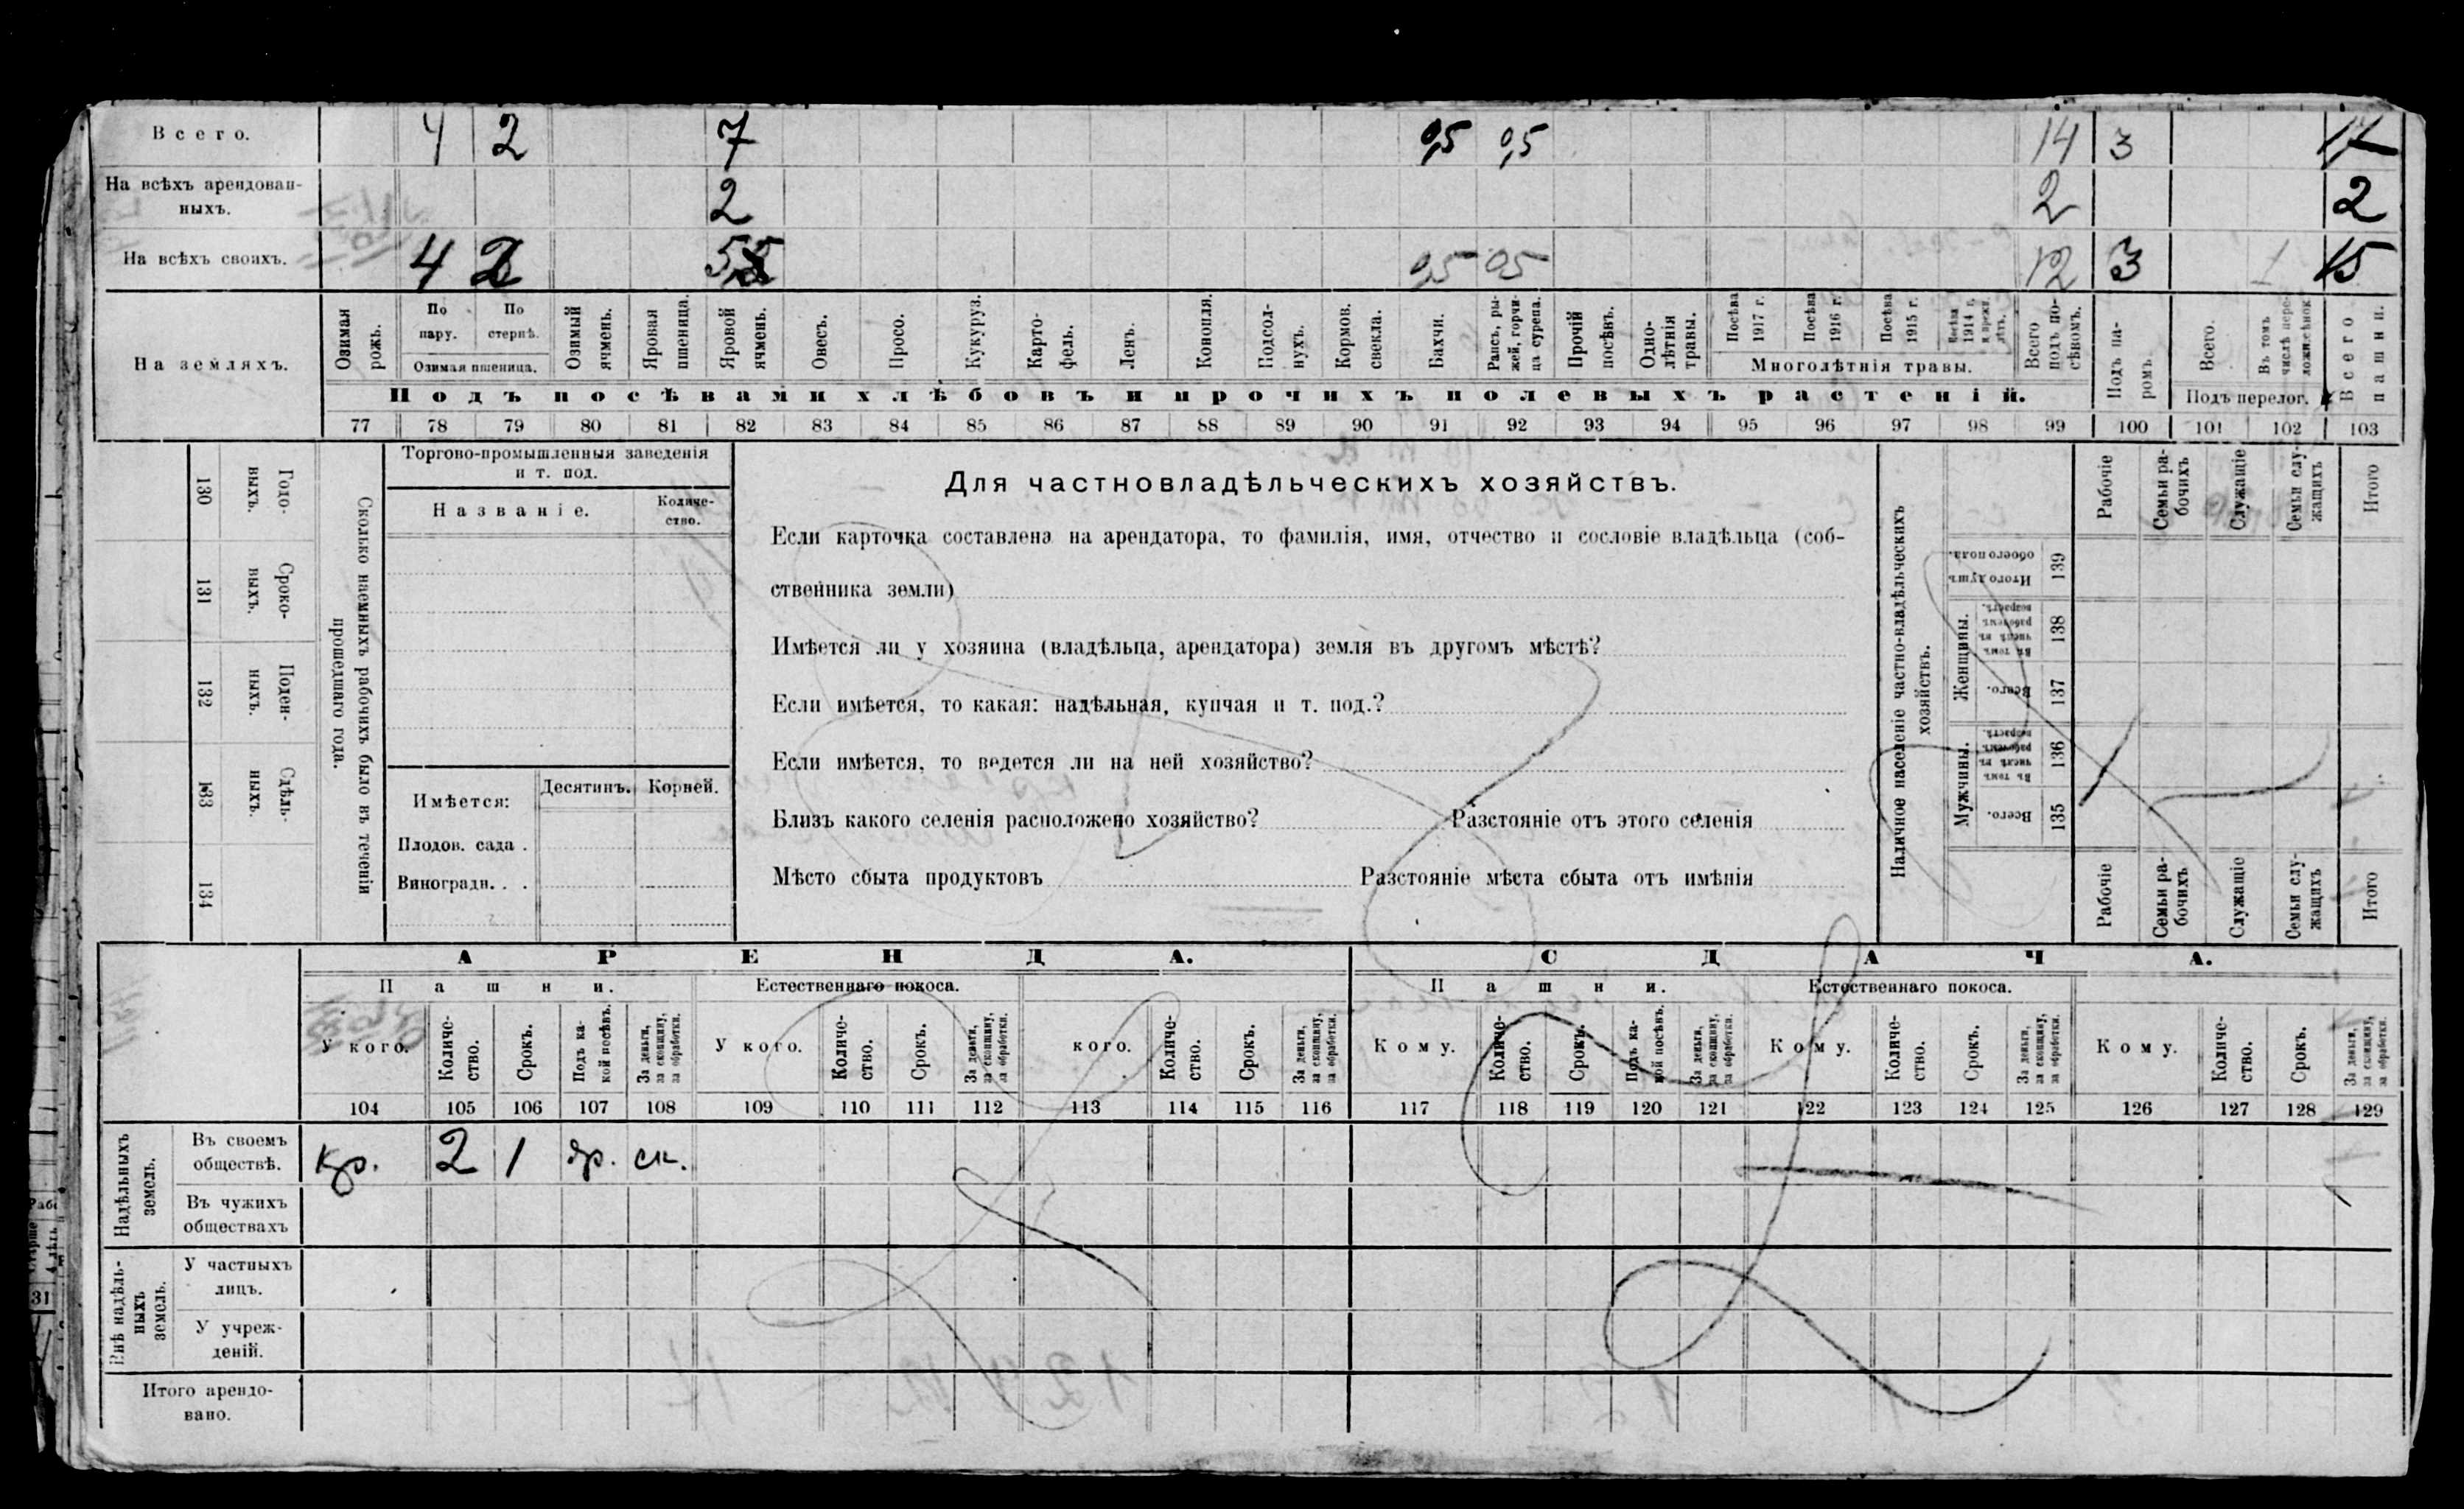 Всего. 4 2 7 0,5 0,5 14 3 17
На всѣхъ арендован-
ныхъ. 2 2 2
На всѣхъ своихъ. 4 2 0,5 05 12 3 1 15
На земляхъ.
Озимая рожь.
По пару.
По стернѣ.
Озимая пшеница.
Озимый ячмень.
Яровая пшеница.
Яровой ячмень.
Овесъ.
Просо.
Кукуруз.
Карто-
фель.
Ленъ.
Конопля.
Подсол-
нухъ.
Кормов. свекла.
Бахчи.
Рапсъ, ры-
жей, горчи-
ца сурепа.
Прочій посѣвъ.
Одно-
лѣтнія травы.
Посѣва 1917 г.
Посѣва 1916 г.
Посѣва 1915 г.
Посѣва 1914 г. и прежн. лѣтъ.
Многолѣтнія травы.
Всего подъ по-
сѣвомъ.
Подъ па-
ромъ.
Всего.
Въ томъ числѣ пере-
ложн. сѣнок
Подъ перелог.
Всего пашни.
Подъ посѣвами хлѣбовъ и прочихъ полевыхъ растеній.
77 78 79 80 81 82 83 84 85 86 87 88 89 90 91 92 93 94 95 96 97 98 99 100 101 102 103
130 Годо-
выхъ.
131 Сроко-
выхъ.
132 Поден-
ныхъ.
133 Сдѣль-
ныхъ.
134
Сколько наемныхъ рабочихъ было въ теченіи
прошедшаго года.
Торгово-промышленныя заведенія
и т. под.
Названіе.
Количе-
ство.
Имѣется:
Десятинъ. Корней.
Плодов. сада .
Виноградн. . .
Для частновладѣльческихъ хозяйствъ.
Если карточка составлена на арендатора, то фамилія, имя, отчество и сословіе владѣльца (соб-
ственника земли)
Имѣется ли у хозяина (владѣльца, арендатора) земля въ другомъ мѣстѣ?
Если имѣется, то какая: надѣльная, купчая и т. под.?
Если имѣется, то ведется ли на ней хозяйство?
Близъ какого селенія расположено хозяйство? Разстояніе отъ этого селенія
Мѣсто сбыта продуктовъ Разстояніе мѣста сбыта отъ имѣнія
Наличное населеніе частно-владѣльческихъ
хозяйствъ.
Рабочіе
Семьи ра-
бочихъ
Служащіе
Семьи слу-
жащихъ
Итого
Итого душъ обоего пола. 139
Женщины.
Въ томъ числѣ въ рабочемъ возрастѣ. 138
Всего. 137
Мужчины.
Въ томъ числѣ въ рабочемъ возрастѣ. 136
Всего. 135
Рабочіе
Семьи ра-
бочихъ
Служащіе
Семьи слу-
жащихъ
Итого
АРЕНДА. СДАЧА.
Пашни. Естественнаго покоса. Пашни. Естественнаго покоса.
У кого.
Количе-
ство.
Срокъ.
Подъ ка-
кой посѣвъ.
За деньги,
за скопщину,
за обработки.
У кого.
Количе-
ство.
Срокъ.
За деньги,
за скопщину,
за обработки.
кого.
Количе-
ство.
Срокъ.
За деньги,
за скопщину,
за обработки.
Кому.
Количе-
ство.
Срокъ.
Подъ ка-
кой посѣвъ.
За деньги,
за скопщину,
за обработки.
Кому.
Количе-
ство.
Срокъ.
За деньги,
за скопщину,
за обработки.
Кому.
Количе-
ство.
Срокъ.
За деньги,
за скопщину,
за обработки.
104 105 106 107 108 109 110 111 112 113 114 115 116 117 118 119 120 121 122 123 124 125 126 127 128 129
Надѣльныхъ
земель.
Въ своемъ
обществѣ. кр. 2 1 яр. ск.
Въ чужихъ
обществахъ
Внѣ надѣль-
ныхъ
земель.
У частныхъ
лицъ.
У учреж-
деній.
Итого арендо-
вано.
31